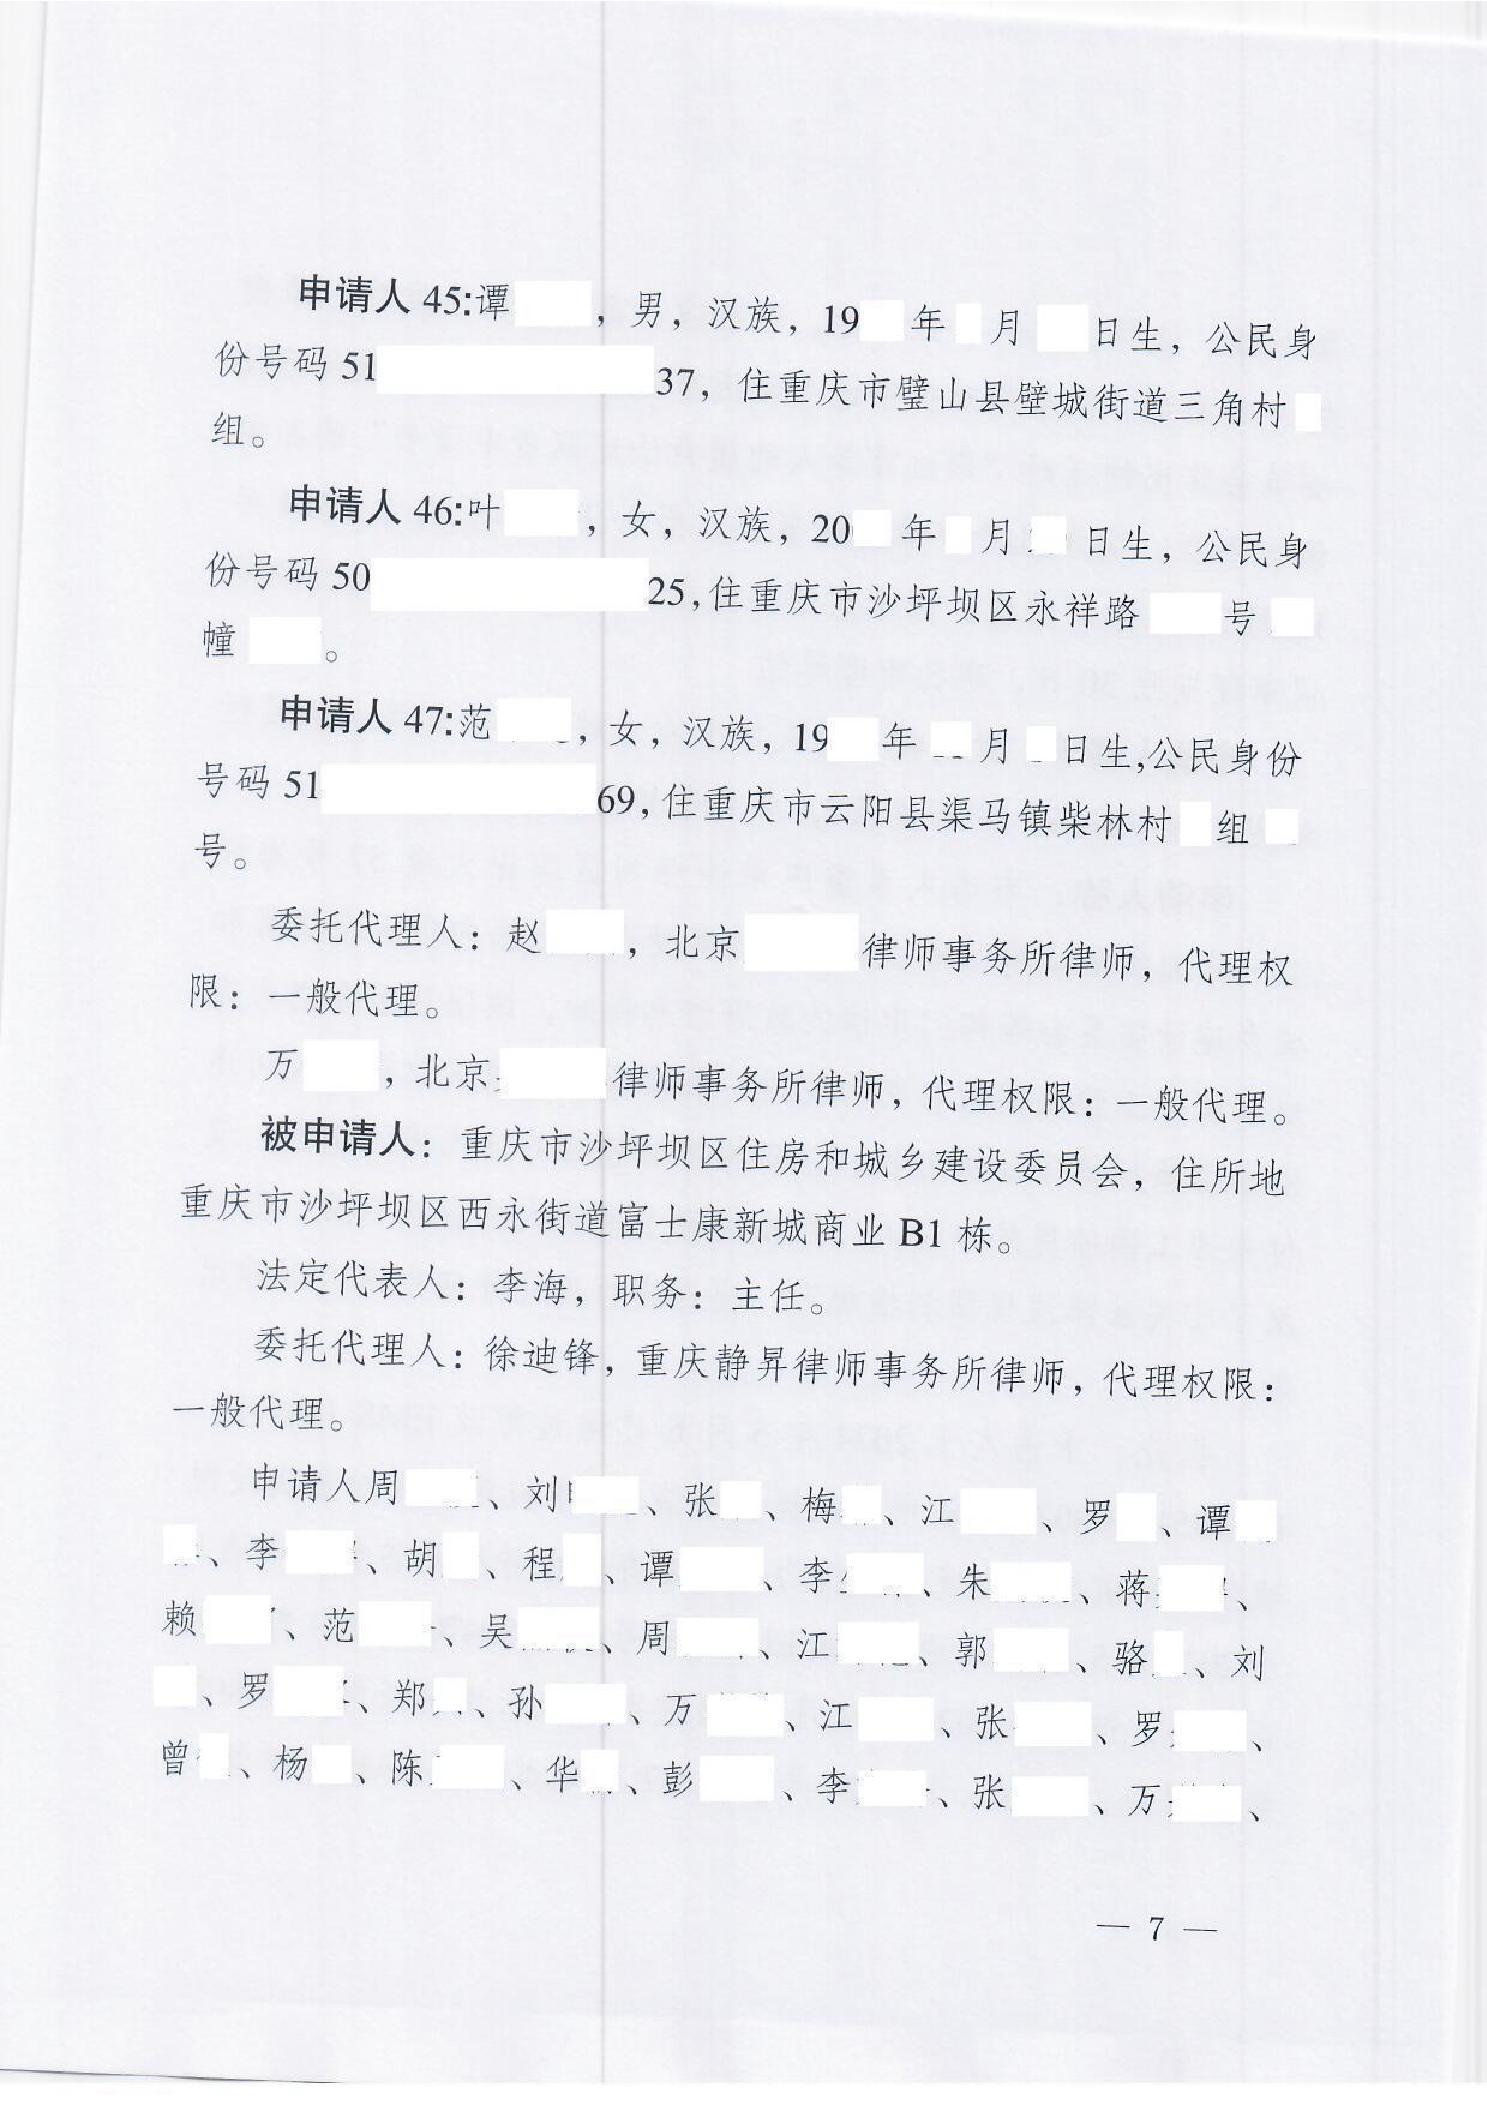 申请人 45:谭 ，男，汉族，19 年 月 日生，公民身
份号码 51 37，住重庆市璧山县壁城街道三角村
组。
申请人 46:叶 ，女，汉族，20 年 月 日生，公民身
份号码 50 25,住重庆市沙坪坝区永祥路 号
幢 。
申请人 47:范 ，女，汉族，19 年 月 日生,公民身份
号码 51 69,住重庆市云阳县渠马镇柴林村 组
号。
委托代理人：赵 ，北京 律师事务所律师，代理权
限：一般代理。
万 ，北京 律师事务所律师，代理权限：一般代理。
被申请人：重庆市沙坪坝区住房和城乡建设委员会，住所地
重庆市沙坪坝区西永街道富士康新城商业 B1 栋。
法定代表人：李海，职务：主任。
委托代理人：徐迪锋，重庆静昇律师事务所律师，代理权限：
一般代理。
申请人周 、刘 、张 、梅 、江 、罗 、谭
、李 、胡 、程 、谭 、李 、朱 、蒋 、
赖 、范 、吴 、周 、江 、郭 、骆 、刘
、罗 、郑 、孙 、万 、江 、张 、罗 、
曾 、杨 、陈 、华 、彭 、李 、张 、万 、
— 7 —